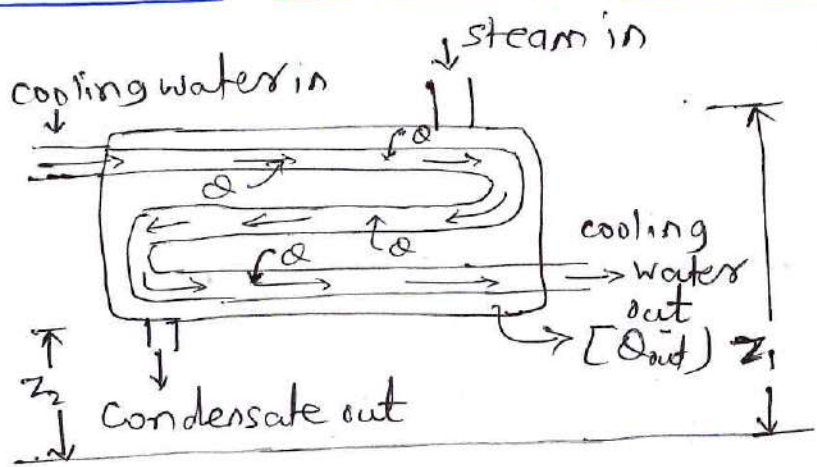 steam in
cooling water in
Q
Q
Q
Q
cooling
water
out
[Qout)
Z1
Z2
Condensate out